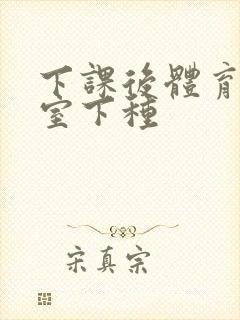 下課後體育
室下種
宋真宗